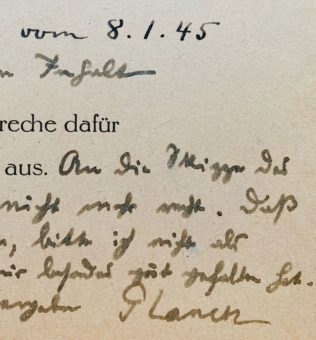 vom 8.1.45
Inhalt
reche dafür
aus. An die Skizze das
nicht mehr recht. Daß
bitte ich nicht als
mir besonders gut gefallen hat.
Planck